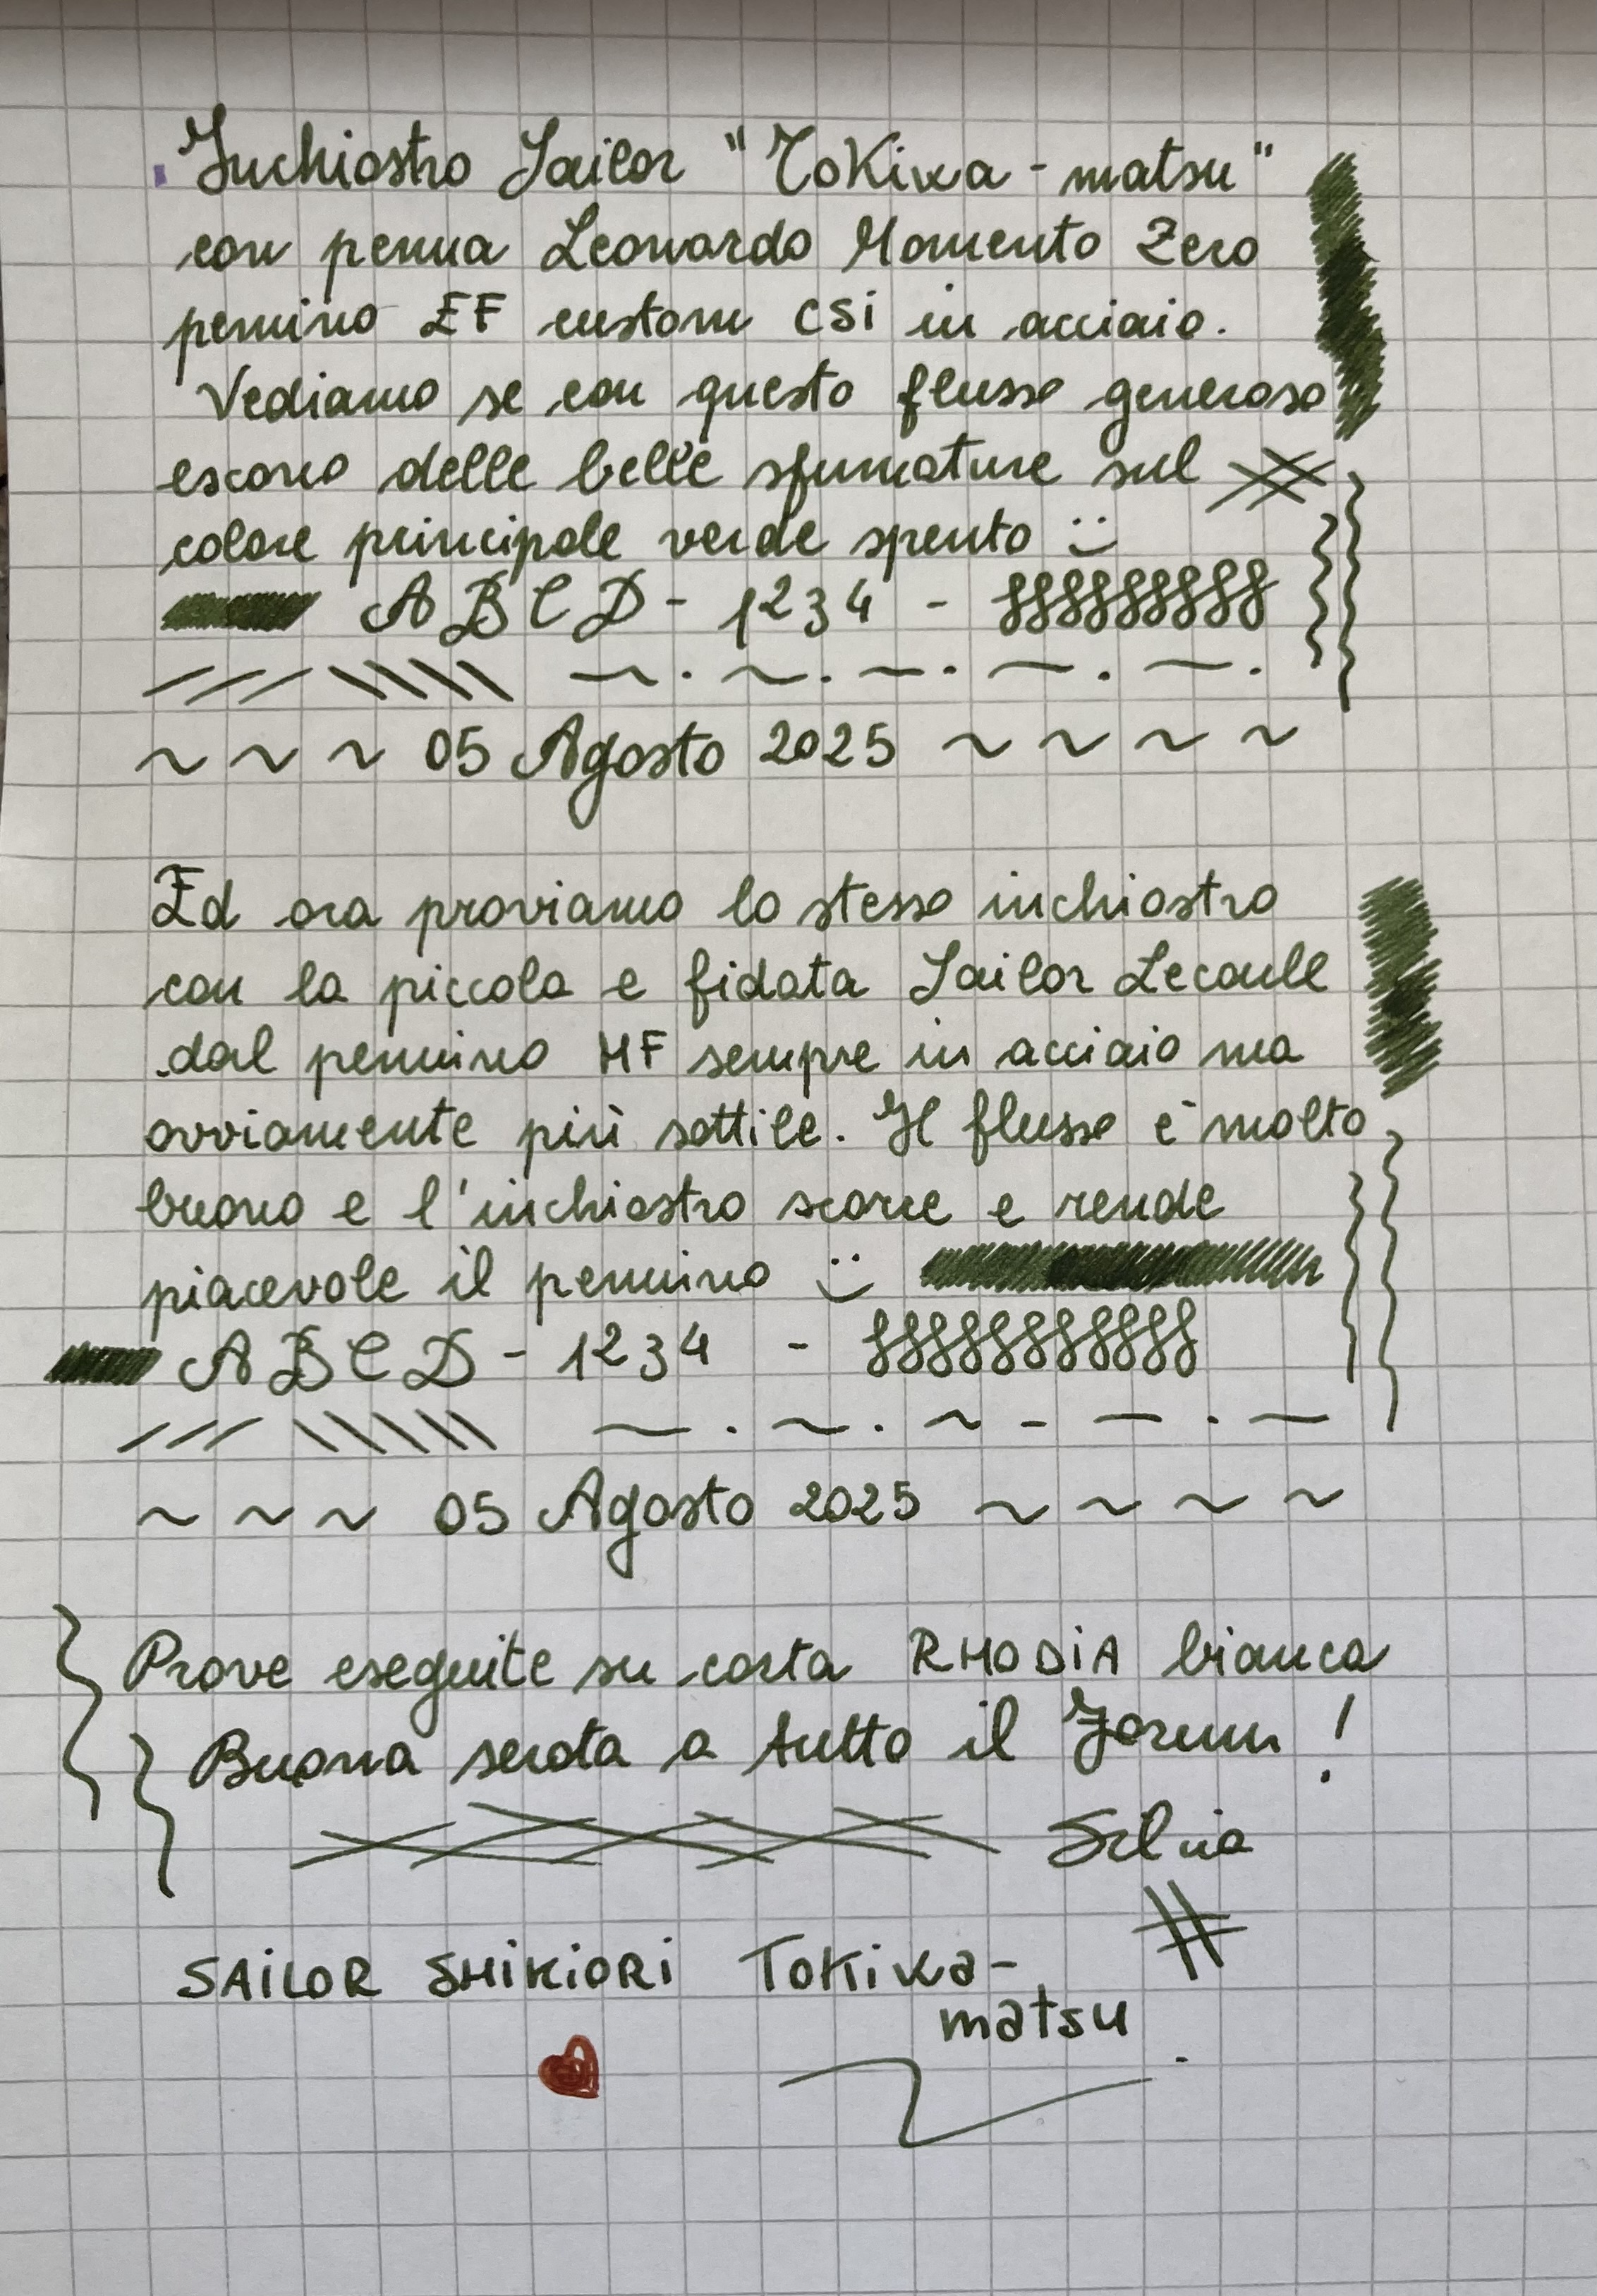 Inchiostro Sailor "Tokiwa-matsu"
con penna Leonardo Momento Zero
pennino EF custom CSi in acciaio.
Vediamo se con questo flusso generoso
escono delle belle sfumature sul
colore principale verde spento :)
A B C D - 1 2 3 4 -
~ ~ ~ 05 Agosto 2025 ~ ~ ~ ~
Ed ora proviamo lo stesso inchiostro
con la piccola e fidata Sailor Lecoule
dal pennino MF sempre in acciaio ma
ovviamente più sottile. Il flusso è molto
buono e l'inchiostro scorre e rende
piacevole il pennino :)
A B C D - 1 2 3 4 -
~ ~ ~ 05 Agosto 2025 ~ ~ ~ ~
Prove eseguite su carta RHODiA bianca
Buona serata a tutto il Forum!
Silvia
SAiLOR SHiKiORi Tokiwa-
matsu